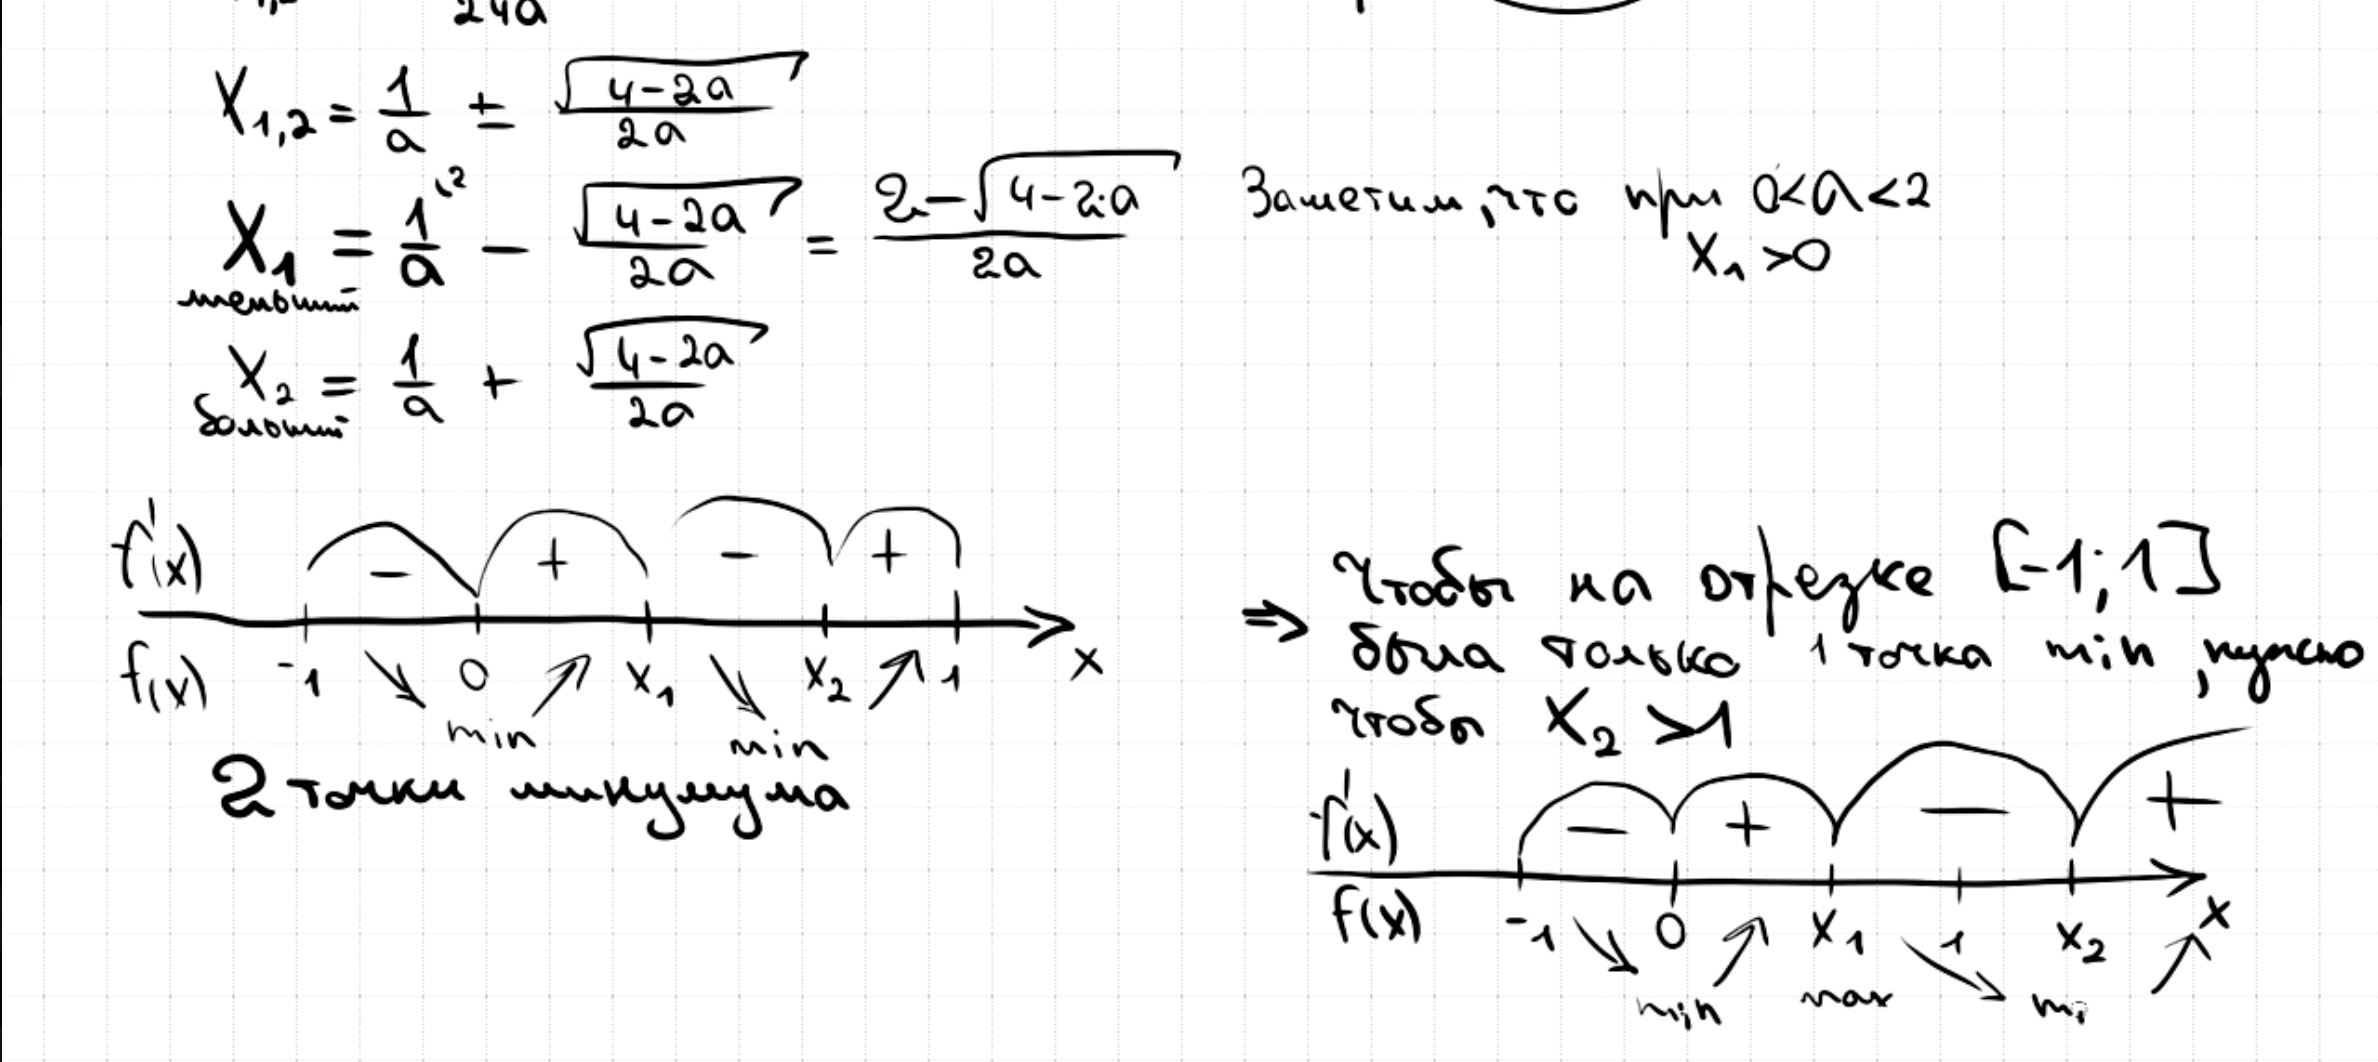 24a
X₁,₂ = 1/a ± √(4-2a)/2a
X₁ = 1/a^(2 - √(4-2a)/2a = (2-√(4-2·a))/2a Заметим, что при 0<a<2
меньший X₁ >0
X₂ = 1/a + √(4-2a)/2a
больший
f'(x) - + - +
f(x) -1 ↘ 0 ↗ X₁ ↘ X₂ ↗ 1 x
min min
2 точки минимума
⇒ Чтобы на отрезке [-1; 1]
была только 1 точка min, нужно
чтобы X₂ >1
f'(x) - + - +
f(x) -1 ↘ 0 ↗ X₁ ↘ 1 X₂ ↗ x
min max